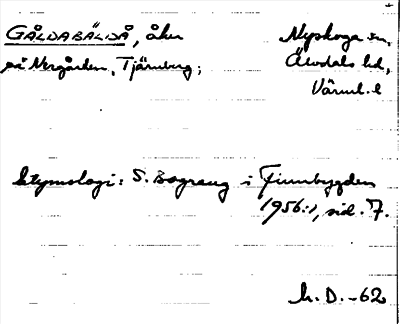 GÅLDABÄLDÅ, åker
på Norgården, Tjärnberg;
Nyskoga sn,
Älvdals hd,
Värml. l
Etymologi: S. Bograng i Finnbygden
1956:1, sid. 7.
h. D. -62